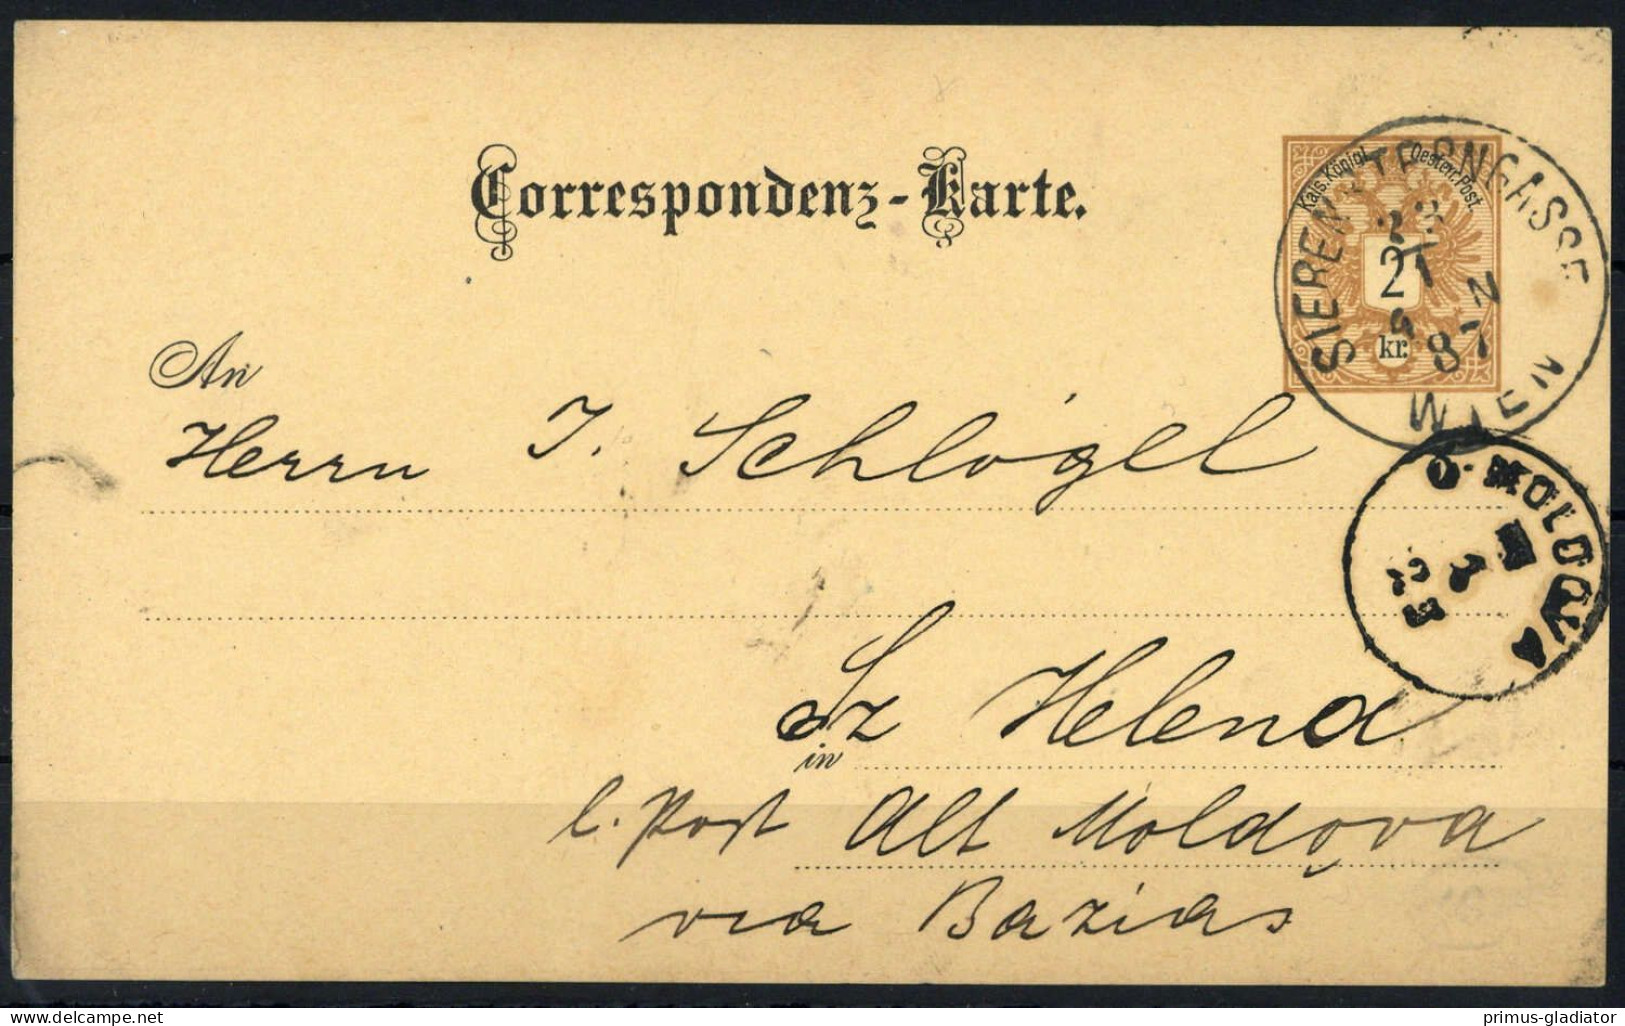 Correspondenz-Karte.
Kais. Königl. Oesterr. Post.
2
kr.
SIEBENSTERNGASSE
WIEN
87
An
Herrn J. Schlögel
O-MOLDOVA
in Sz Helena
l. Post Alt Moldova
via Bazias
delcampe.net
primus-gladiator